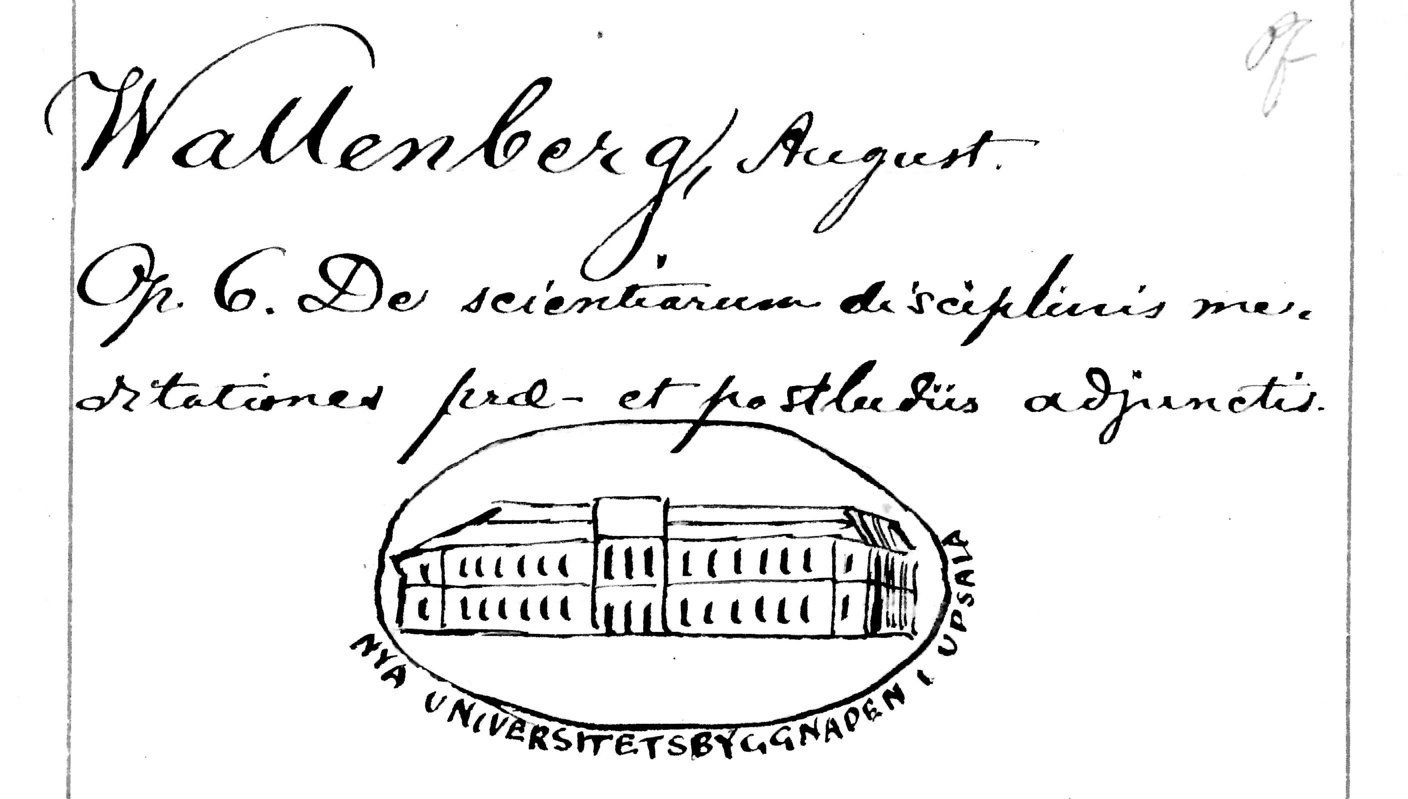 Wallenberg, August.
Op. 6. De scientiarum disciplinis me-
ditationes præ- et postludiis adjunctis.
NYA UNIVERSITETSBYGGNADEN I UPSALA